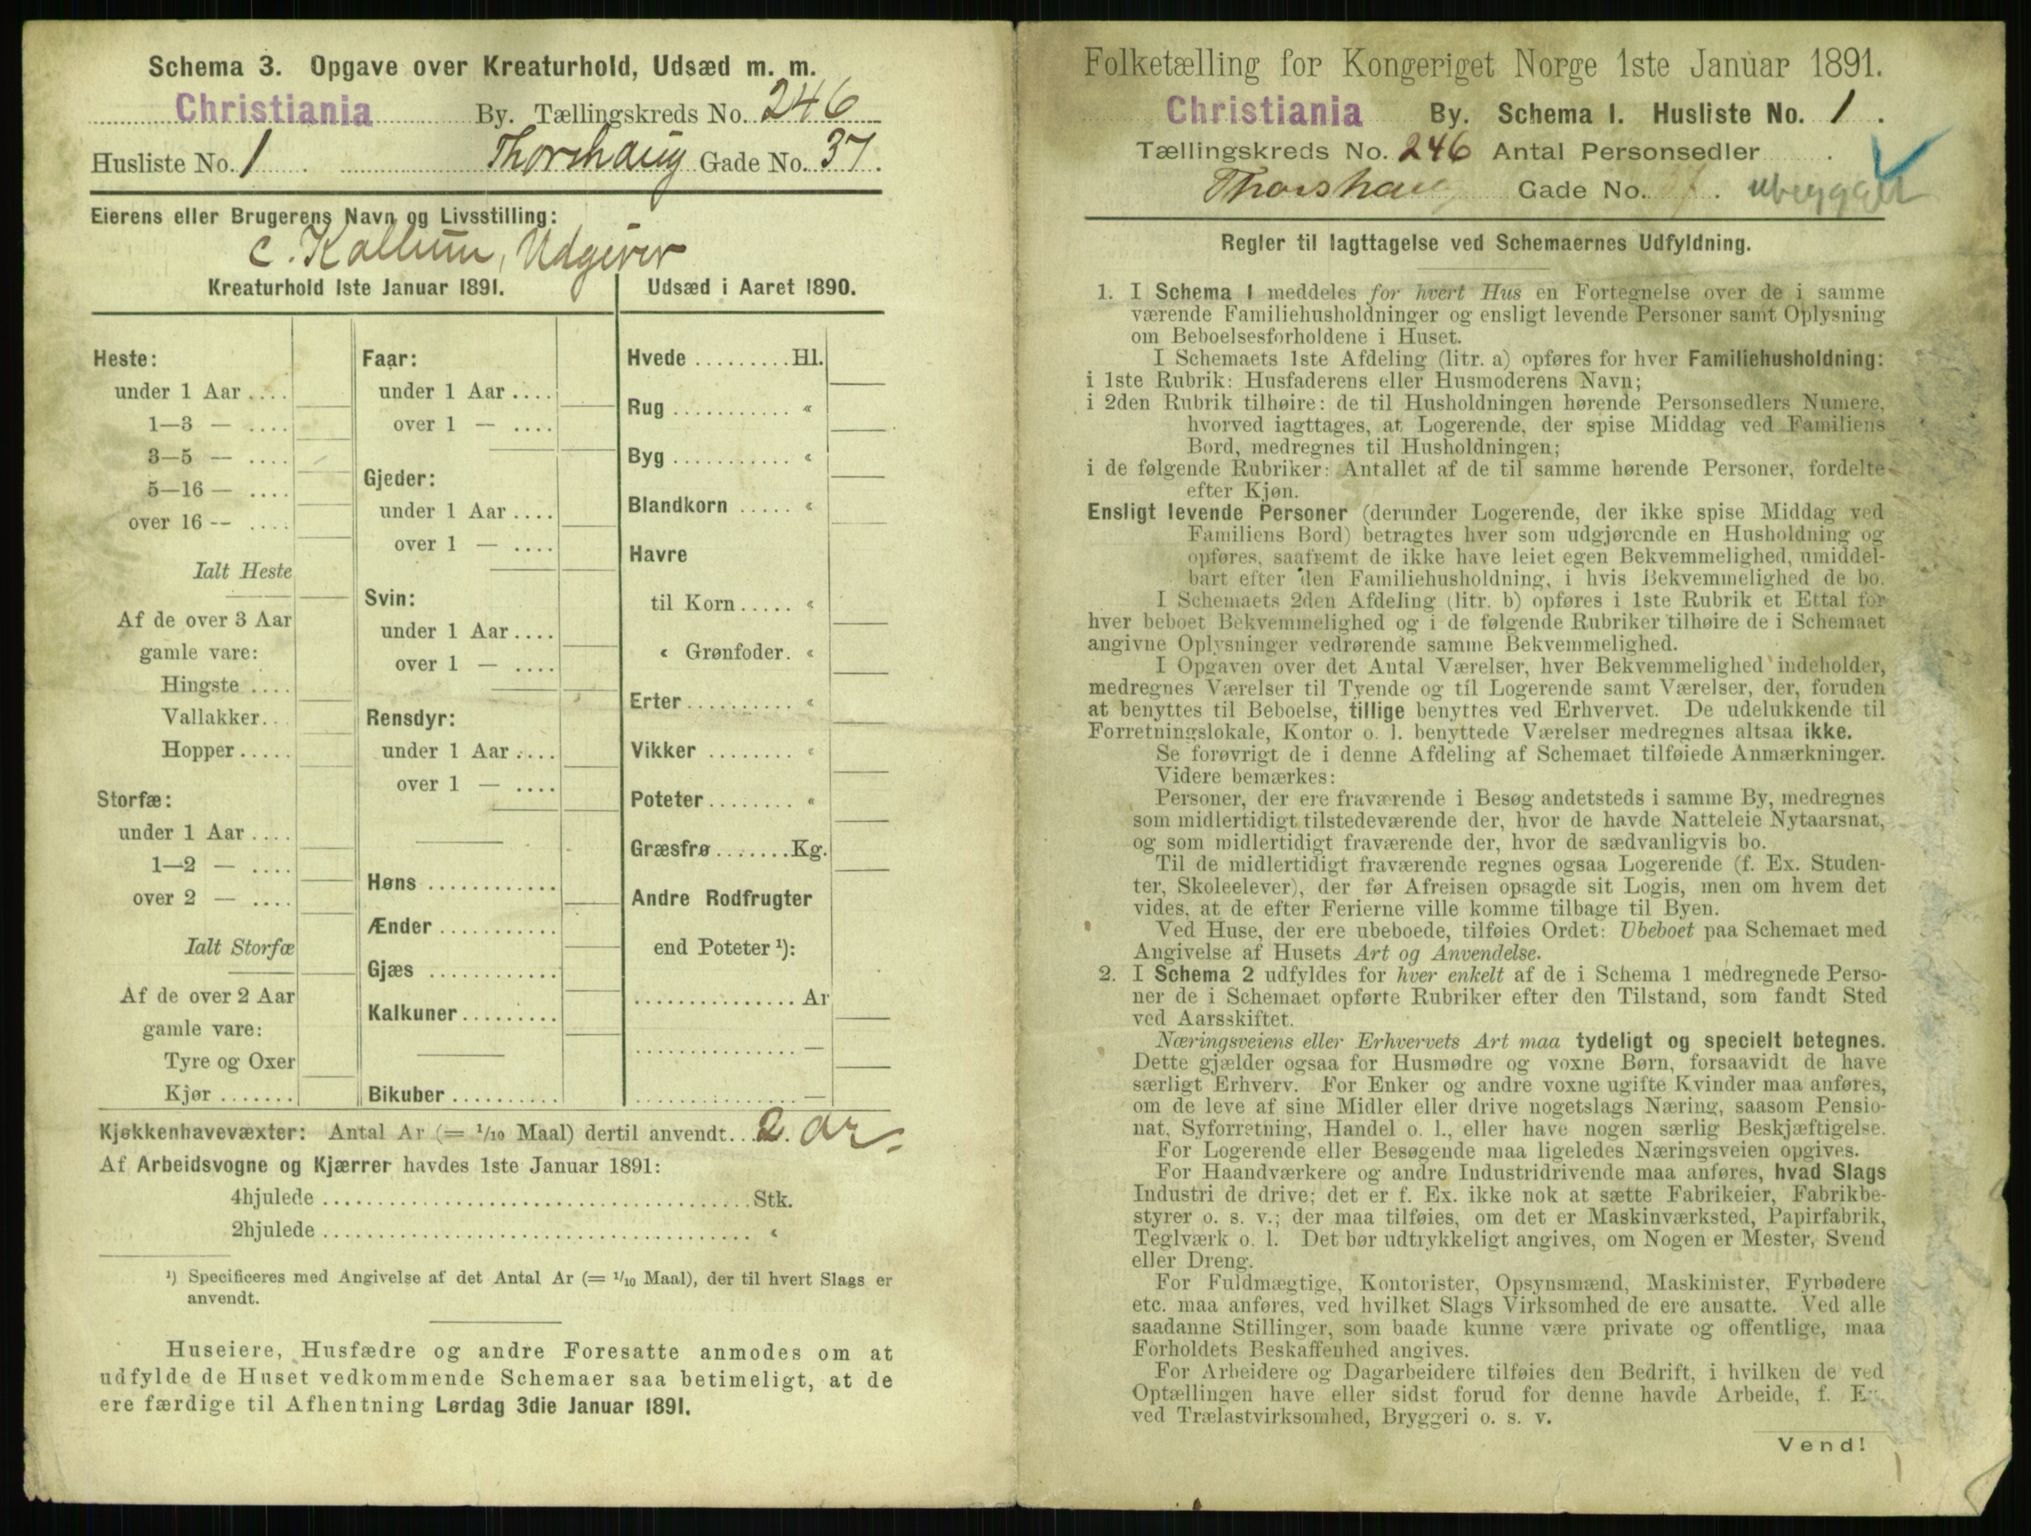 Schema 3. Opgave over Kreaturhold, Udsæd m. m.
Christiania By. Tællingskreds No. 246
Husliste No. 1 Thorshaug Gade No. 37.
Eierens eller Brugerens Navn og Livsstilling:
C. Kallum, Udgiver
Kreaturhold 1ste Januar 1891.
Heste:
under 1 Aar ....
1—3 — ....
3—5 — ....
5—16 — ....
over 16 — ....
Ialt Heste
Af de over 3 Aar
gamle vare:
Hingste ....
Vallakker..
Hopper .....
Storfæ:
under 1 Aar ....
1—2 — ....
over 2 — ....
Ialt Storfæ
Af de over 2 Aar
gamle vare:
Tyre og Oxer
Kjør .......
Faar:
under 1 Aar ....
over 1 — ....
Gjeder:
under 1 Aar ....
over 1 — ....
Svin:
under 1 Aar ....
over 1 — ....
Rensdyr:
under 1 Aar ....
over 1 — ....
Høns ............
Ænder ...........
Gjæs ............
Kalkuner.........
Bikuber ..........
Udsæd i Aaret 1890.
Hvede .........Hl.
Rug ........... «
Byg ........... «
Blandkorn ..... «
Havre
til Korn ..... «
« Grønfoder. «
Erter.......... «
Vikker ........ «
Poteter........ «
Græsfrø .......Kg.
Andre Rodfrugter
end Poteter ¹):
............... Ar
............... —
............... —
Kjøkkenhavevæxter: Antal Ar (= 1/10 Maal) dertil anvendt.. 2 ar.
Af Arbeidsvogne og Kjærrer havdes 1ste Januar 1891:
4hjulede ........................................Stk.
2hjulede ........................................ «
¹) Specificeres med Angivelse af det Antal Ar (= 1/10 Maal), der til hvert Slags er
anvendt.
Huseiere, Husfædre og andre Foresatte anmodes om at
udfylde de Huset vedkommende Schemaer saa betimeligt, at de
ere færdige til Afhentning Lørdag 3die Januar 1891.
Folketælling for Kongeriget Norge 1ste Januar 1891.
Christiania By. Schema I. Husliste No. 1.
Tællingskreds No. 246 Antal Personsedler .
Thorshaug Gade No. 37. ubygget
Regler til Iagttagelse ved Schemaernes Udfyldning.
1. I Schema 1 meddeles for hvert Hus en Fortegnelse over de i samme
værende Familiehusholdninger og ensligt levende Personer samt Oplysning
om Beboelsesforholdene i Huset.
I Schemaets 1ste Afdeling (litr. a) opføres for hver Familiehusholdning:
i 1ste Rubrik: Husfaderens eller Husmoderens Navn;
i 2den Rubrik tilhøire: de til Husholdningen hørende Personsedlers Numere,
hvorved iagttages, at Logerende, der spise Middag ved Familiens
Bord, medregnes til Husholdningen;
i de følgende Rubriker: Antallet af de til samme hørende Personer, fordelte
efter Kjøn.
Ensligt levende Personer (derunder Logerende, der ikke spise Middag ved
Familiens Bord) betragtes hver som udgjørende en Husholdning og
opføres, saafremt de ikke have leiet egen Bekvemmelighed, umiddel-
bart efter den Familiehusholdning, i hvis Bekvemmelighed de bo.
I Schemaets 2den Afdeling (litr. b) opføres i 1ste Rubrik et Ettal for
hver beboet Bekvemmelighed og i de følgende Rubriker tilhøire de i Schemaet
angivne Oplysninger vedrørende samme Bekvemmelighed.
I Opgaven over det Antal Værelser, hver Bekvemmelighed indeholder,
medregnes Værelser til Tyende og til Logerende samt Værelser, der, foruden
at benyttes til Beboelse, tillige benyttes ved Erhvervet. De udelukkende til
Forretningslokale, Kontor o. l. benyttede Værelser medregnes altsaa ikke.
Se forøvrigt de i denne Afdeling af Schemaet tilføiede Anmærkninger.
Videre bemærkes:
Personer, der ere fraværende i Besøg andetsteds i samme By, medregnes
som midlertidigt tilstedeværende der, hvor de havde Natteleie Nytaarsnat,
og som midlertidigt fraværende der, hvor de sædvanligvis bo.
Til de midlertidigt fraværende regnes ogsaa Logerende (f. Ex. Studen-
ter, Skoleelever), der før Afreisen opsagde sit Logis, men om hvem det
vides, at de efter Ferierne ville komme tilbage til Byen.
Ved Huse, der ere ubeboede, tilføies Ordet: Ubeboet paa Schemaet med
Angivelse af Husets Art og Anvendelse.
2. I Schema 2 udfyldes for hver enkelt af de i Schema 1 medregnede Perso-
ner de i Schemaet opførte Rubriker efter den Tilstand, som fandt Sted
ved Aarsskiftet.
Næringsveiens eller Erhvervets Art maa tydeligt og specielt betegnes.
Dette gjælder ogsaa for Husmødre og voxne Børn, forsaavidt de have
særligt Erhverv. For Enker og andre voxne ugifte Kvinder maa anføres,
om de leve af sine Midler eller drive nogetslags Næring, saasom Pensio-
nat, Syforretning, Handel o. l., eller have nogen særlig Beskjæftigelse.
For Logerende eller Besøgende maa ligeledes Næringsveien opgives.
For Haandværkere og andre Industridrivende maa anføres, hvad Slags
Industri de drive; det er f. Ex. ikke nok at sætte Fabrikeier, Fabrikbe-
styrer o. s. v.; der maa tilføies, om det er Maskinværksted, Papirfabrik,
Teglværk o. l. Det bør udtrykkeligt angives, om Nogen er Mester, Svend
eller Dreng.
For Fuldmægtige, Kontorister, Opsynsmænd, Maskinister, Fyrbødere
etc. maa anføres, ved hvilket Slags Virksomhed de ere ansatte. Ved alle
saadanne Stillinger, som baade kunne være private og offentlige, maa
Forholdets Beskaffenhed angives.
For Arbeidere og Dagarbeidere tilføies den Bedrift, i hvilken de ved
Optællingen have eller sidst forud for denne havde Arbeide, f. Ex.
ved Trælastvirksomhed, Bryggeri o. s. v.
Vend!